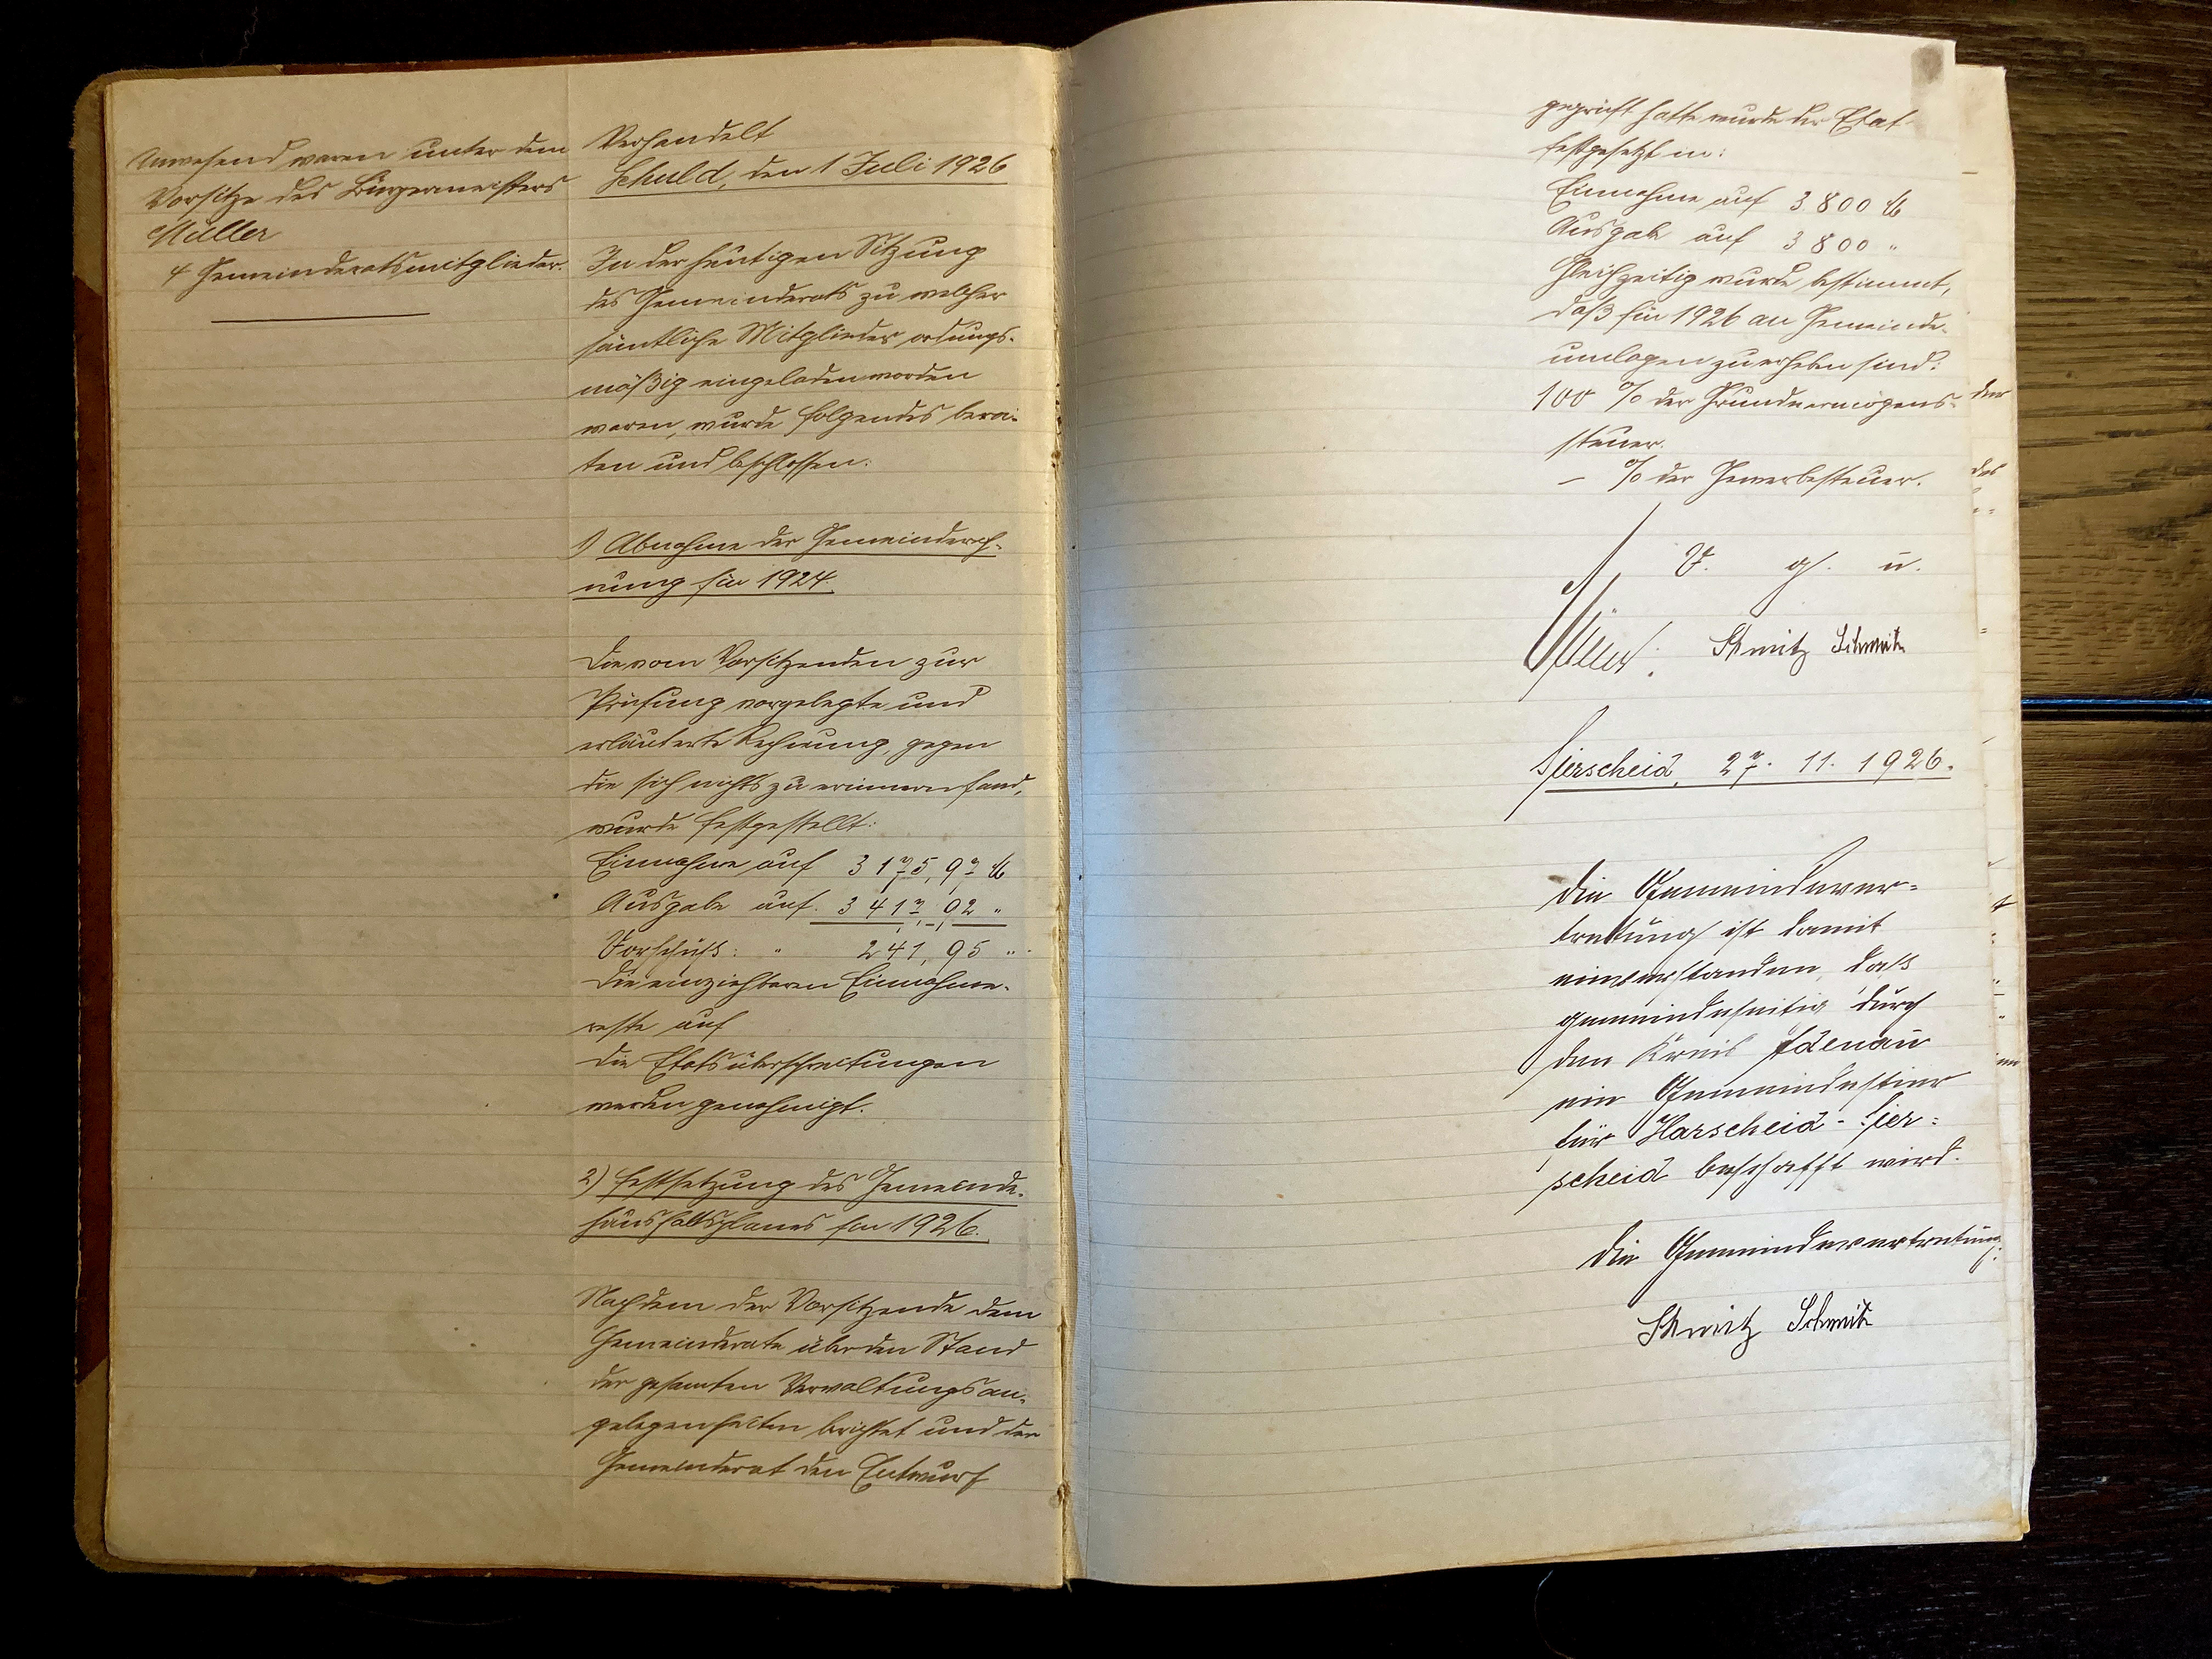 Anwesend waren unter dem
Vorsitze des Bürgermeisters
Müller
4 Gemeinderatsmitglieder.
Verhandelt
Schuld, den 1 Juli 1926
In der heutigen Sitzung
des Gemeinderats zu welcher
sämtliche Mitglieder ordnungs-
mäßig eingeladen worden
waren, wurde folgendes bera-
ten und beschlossen:
1) Abnahme der Gemeinderech-
nung für 1924.
Die vom Vorsitzenden zur
Prüfung vorgelegte und
erläuterte Rechnung, gegen
die sich nichts zu erinnern fand,
wurde festgestellt:
Einnahme auf 3175,97 M
Ausgabe auf 3417,92 "
Vorschuß: " 241,95 "
Die einziehbaren Einnahme-
reste auf
Die Etatsüberschreitungen
werden genehmigt.
2) Festsetzung des Gemeinde-
haushaltsplanes für 1926.
Nachdem der Vorsitzende dem
Gemeinderate über den Stand
der gesamten Verwaltungsan-
gelegenheiten berichtet und der
Gemeinderat den Entwurf
geprüft hatte wurde der Etat
festgesetzt in:
Einnahme auf 3800 M
Ausgabe auf 3800 "
Gleichzeitig wurde bestimmt,
daß für 1926 an Gemeinde-
umlagen zu erheben sind:
100 % der Grundvermögens-
steuer.
– % der Gewerbesteuer.
V. g. u.
Müller. Schmitz Schmitz
Sierscheid, 27. 11. 1926.
Die Gemeindever=
tretung ist damit
einverstanden, daß
gemeindeseitig durch
den Kreis Adenau
ein Gemeindestier
für Harscheid - Sier=
scheid beschafft wird.
Die Gemeindevertretung:
Schmitz Schmitz